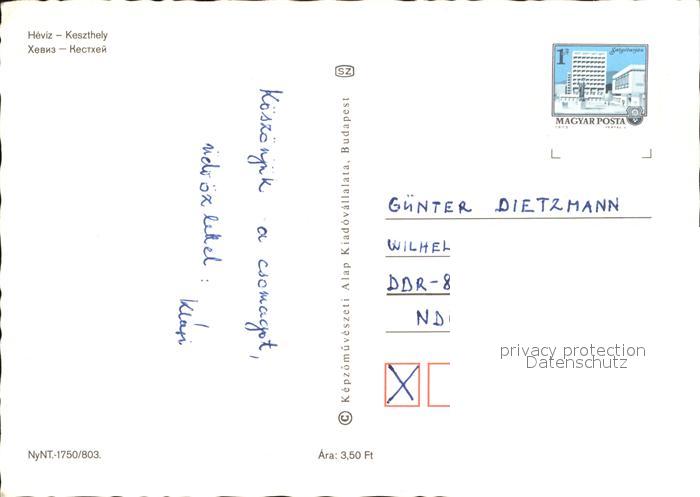 Hévíz – Keszthely
Хевиз — Кестхей
Köszönjük a csomagot,
üdvözlettel:
Klári
SZ
© Képzőművészeti Alap Kiadóvállalata, Budapest
1Ft
Salgótarján
MAGYAR POSTA
GÜNTER DIETZMANN
WILHEL
DDR-8
ND
privacy protection
Datenschutz
NyNT.-1750/803.
Ára: 3,50 Ft